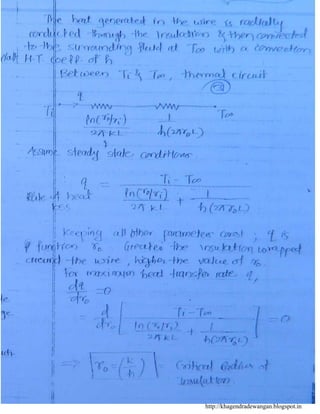 The heat generated in the wire is radially
conducted through the insulation & then convected
to the surrounding fluid at T∞ with a convection
H.T. coeff. of h
Between Ti & T∞, thermal circuit
q
Ti T∞
ln(r₀/ri) / 2πkL 1 / h(2πr₀L)
Assume steady state conditions
Rate of heat loss q = (Ti - T∞) / (ln(r₀/ri) / 2πkL + 1 / h(2πr₀L))
Keeping all other parameters const; q is
function r₀. Greater the insulation wrapped
around the wire, higher the value of r₀.
for maximum heat transfer rate q,
dq/dr₀ = 0
= d/dr₀ [(Ti - T∞) / (ln(r₀/ri) / 2πkL + 1 / h(2πr₀L))] = 0
⇒ r₀ = (k/h) = Critical Radius of
insulation.
http://khagendradewangan.blogspot.in